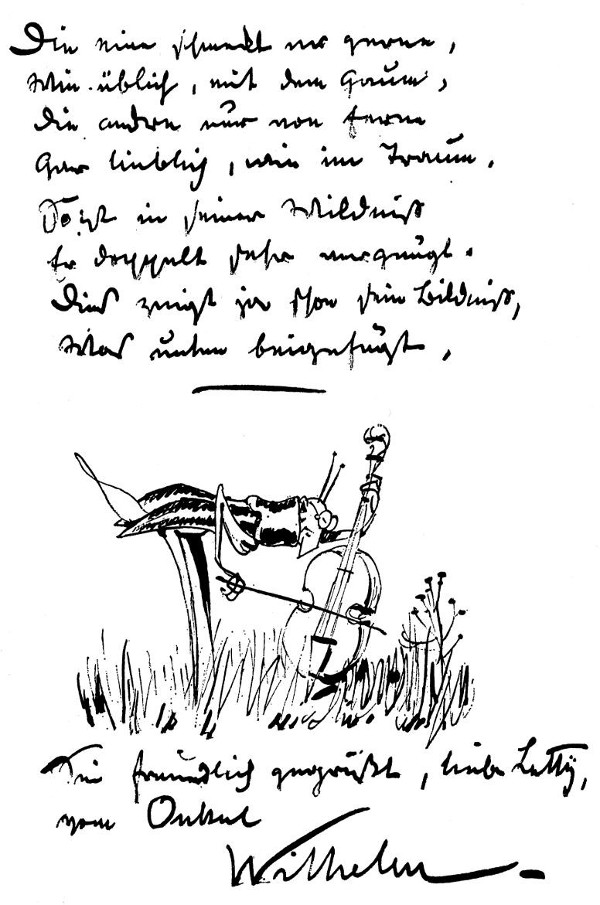 Die eine schmeckt er gerne,
Wie üblich, mit dem Gaum,
Die andre nur von ferne
Gar lieblich, wie im Traum.
So ist in seiner Wildniß
Er doppelt sehr vergnügt.
Dies zeigt ja schon sein Bildniß,
Was unten beigefügt.
Sei freundlich gegrüßt, liebe Letty,
vom Onkel
Wilhelm.